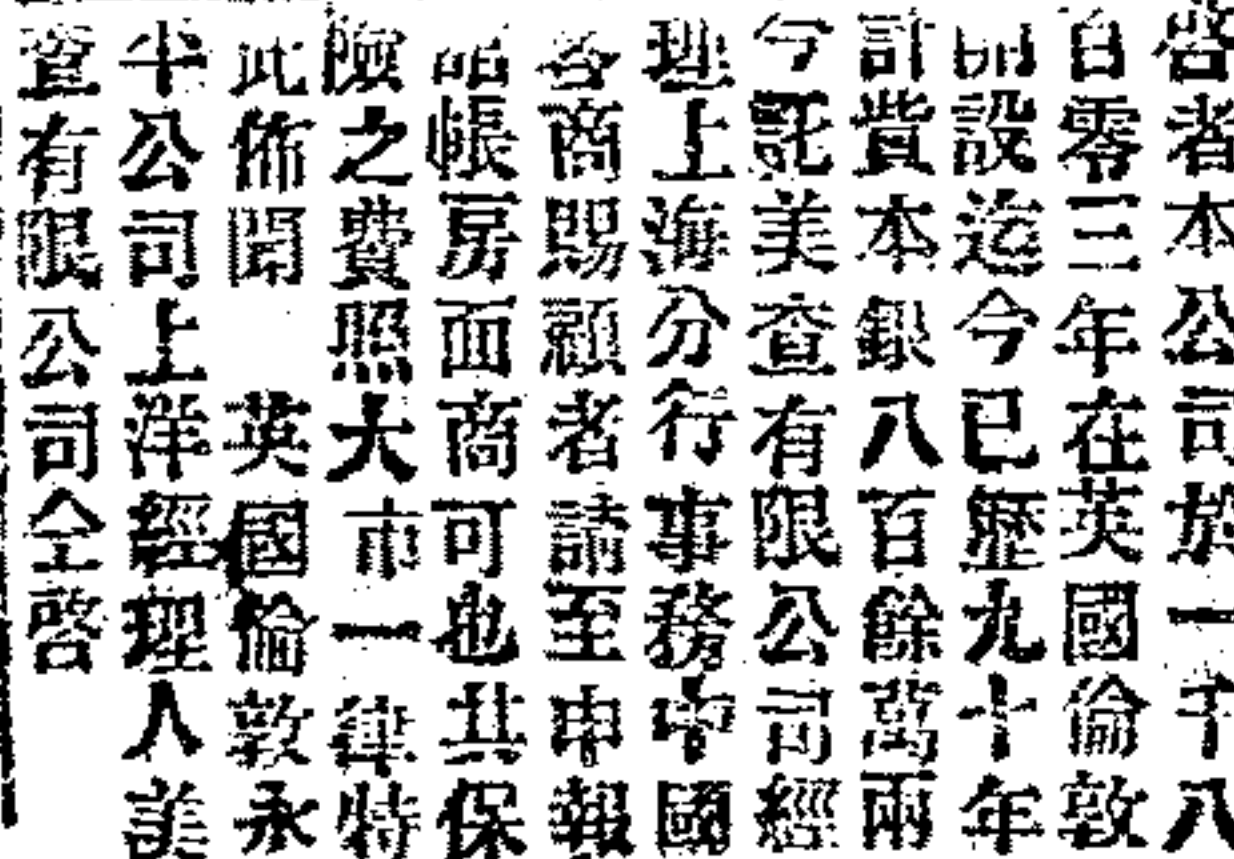 啓者本公司於一千八
百零三年在英國倫敦
開設迄今已歷九十年
計貲本銀八百餘萬兩
今託美查有限公司經
理上海分行事務中國
各商賜顧者請至申報
館帳房面商可也其保
險之費照大市一律特
此佈聞 英國倫敦永
半公司上洋經理人美
查有限公司仝啓